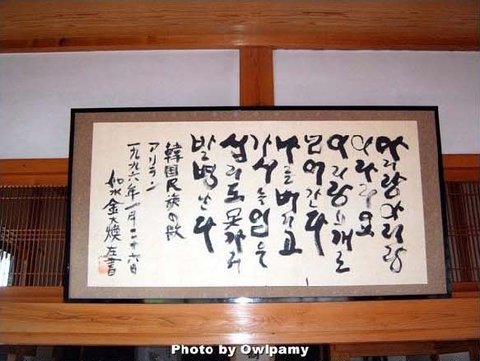 아리랑아리랑
아라리요
아리랑고개로
넘어간다
나를버리고
가시는임은
십리도못가서
발병난다
韓国民族の歌
アリラン
一九九六年一月二十六日
如水 金大煥 左書
Photo by Owlpamy